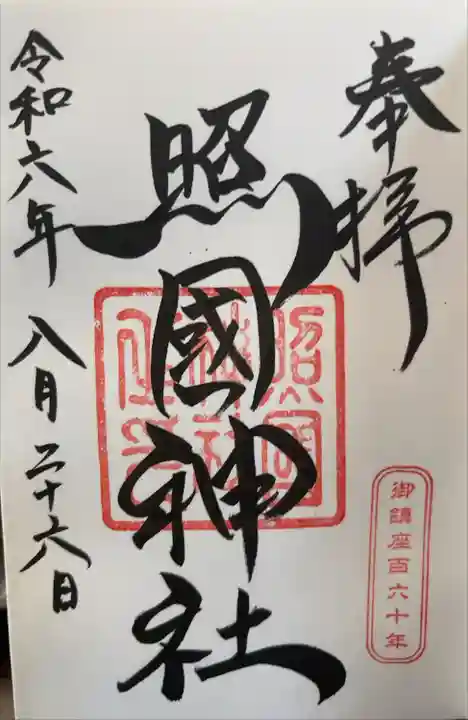 奉拝
照國神社
照國神社
御鎮座百六十年
令和六年 八月二十六日